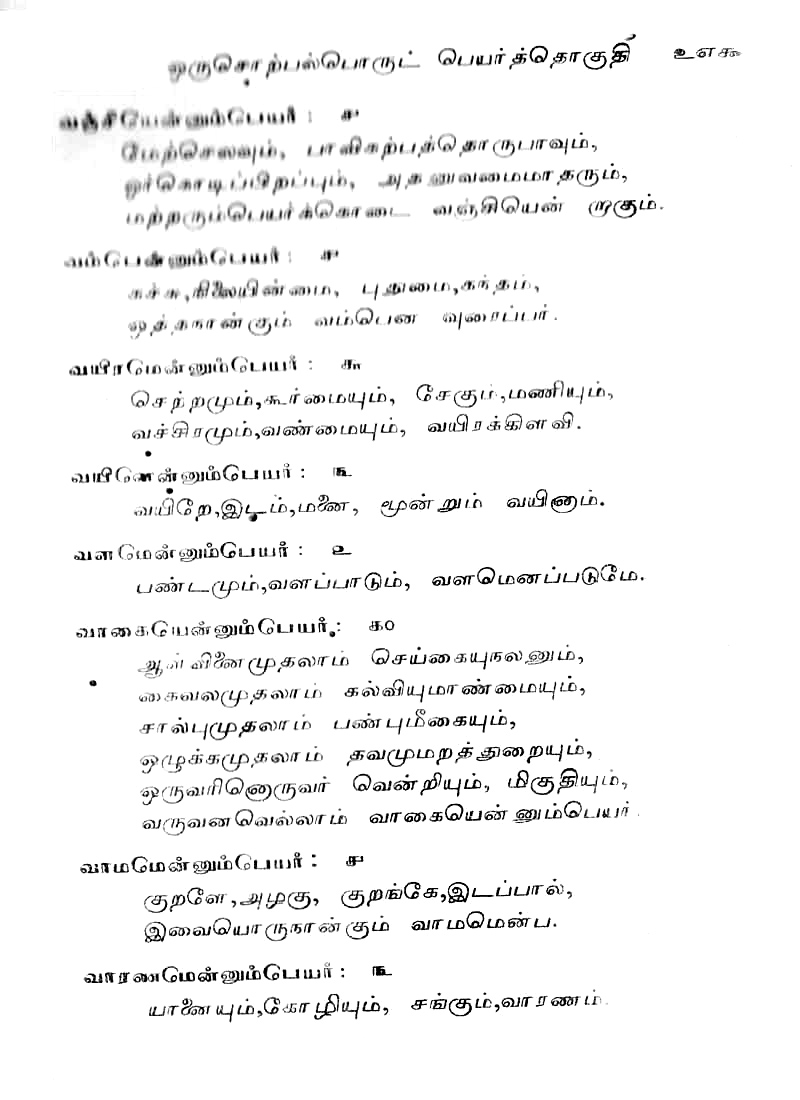 ஒருசொற்பல்பொருட் பெயர்த்தொகுதி ௨௭௯
வஞ்சியென்னும்பெயர் : ௪
மேற்செலவும், பாவிகற்பத்தொருபாவும்,
ஓர்கொடிப்பிறப்பும், அதனுவமைமாதரும்,
மற்றரும்பெயர்க்கொடை வஞ்சியென் றாகும்.
வம்பென்னும்பெயர் : ௪
கச்சு,நிலையின்மை, புதுமை,கந்தம்,
ஒத்தநான்கும் வம்பென வுரைப்பர்.
வயிரமென்னும்பெயர் : ௬
செற்றமும்,கூர்மையும், சேகும்,மணியும்,
வச்சிரமும்,வண்மையும், வயிரக்கிளவி.
வயினென்னும்பெயர் : ௩
வயிறே,இடம்,மனை, மூன்றும் வயினாம்.
வளமென்னும்பெயர் : ௨
பண்டமும்,வளப்பாடும், வளமெனப்படுமே.
வாகையென்னும்பெயர் : ௧௦
ஆள்வினைமுதலாம் செய்கையுநலனும்,
கைவலமுதலாம் கல்வியுமாண்மையும்,
சால்புமுதலாம் பண்புமீகையும்,
ஒழுக்கமுதலாம் தவமுமறத்துறையும்,
ஒருவரினொருவர் வென்றியும், மிகுதியும்,
வருவனவெல்லாம் வாகையென் னும்பெயர்.
வாமமென்னும்பெயர் : ௪
குறளே,அழகு, குறங்கே,இடப்பால்,
இவையொருநான்கும் வாமமென்ப.
வாரணமென்னும்பெயர் : ௩
யானையும்,கோழியும், சங்கும்,வாரணம்.